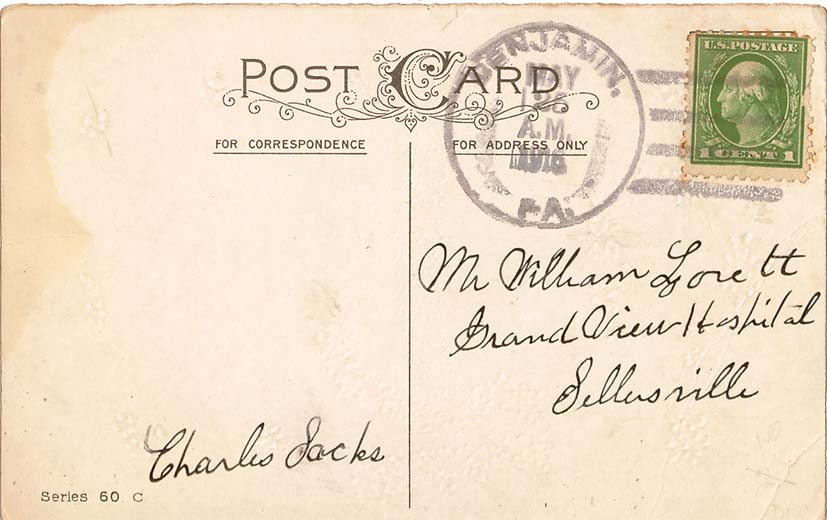 POST CARD
FOR CORRESPONDENCE
FOR ADDRESS ONLY
BENJAMIN.
MAY
A.M.
PA.
U.S. POSTAGE
1 CENT 1
Mr William
Grand View Hospital
Sellersville
Charles Sacks
Series 60. C